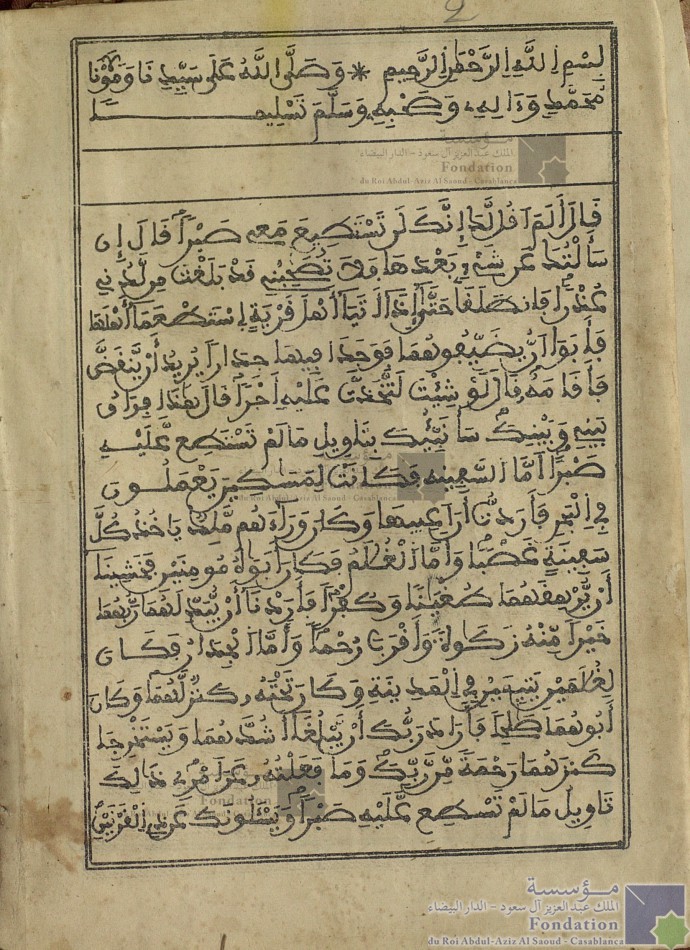 2
بسم الله الرحمن الرحيم * وصلى الله على سيدنا ومولانا
محمد وءاله وصحبه وسلم تسليما
قَالَ أَلَمَ اَقُل لَّكَ إِنَّكَ لَن تَسْتَطِيعَ مَعِي صَبْراً قَالَ إِن
سَأَلْتُكَ عَن شَيْءٍ بَعْدَهَا فَلاَ تُصَٰحِبْنِي قَدْ بَلَغْتَ مِن لَّدُنِي
عُذْراً فَانطَلَقَا حَتَّىٰ إِذَا أَتَيَا أَهْلَ قَرْيَةٍ اِسْتَطْعَمَا أَهْلَهَا
فَأَبَوَا اَنْ يُّضَيِّفُوهُمَا فَوَجَدَا فِيهَا جِدَاراً يُرِيدُ أَنْ يَّنقَضَّ
فَأَقَامَهُ قَالَ لَوْ شِئْتَ لَتَّخَذتَّ عَلَيْهِ أَجْراً قَالَ هَٰذَا فِرَاقُ
بَيْنِي وَبَيْنِكَ سَأُنَبِّئُكَ بِتَاوِيلِ مَا لَمْ تَسْتَطِع عَّلَيْهِ
صَبْراً اَمَّا السَّفِينَةُ فَكَانَتْ لِمَسَٰكِينَ يَعْمَلُونَ
فِي اِلْبَحْرِ فَأَرَدتُّ أَنَ اَعِيبَهَا وَكَانَ وَرَاءَهُم مَّلِكٌ يَاخُذُ كُلَّ
سَفِينَةٍ غَصْباً وَأَمَّا اَلْغُلَٰمُ فَكَانَ أَبَوَاهُ مُومِنَيْنِ فَخَشِينَا
أَنْ يُّرْهِقَهُمَا طُغْيَٰناً وَكُفْراً فَأَرَدْنَا أَنْ يُّبَدِّلَهُمَا رَبُّهُمَا
خَيْراً مِّنْهُ زَكَوٰةً وَأَقْرَبَ رُحْماً وَأَمَّا اَلْجِدَارُ فَكَانَ
لِغُلَٰمَيْنِ يَتِيمَيْنِ فِي اِلْمَدِينَةِ وَكَانَ تَحْتَهُ كَنزٌ لَّهُمَا وَكَانَ
أَبُوهُمَا صَٰلِحاً فَأَرَادَ رَبُّكَ أَنْ يَّبْلُغَا أَشُدَّهُمَا وَيَسْتَخْرِجَا
كَنزَهُمَا رَحْمَةً مِّن رَّبِّكَ وَمَا فَعَلْتُهُ عَنَ اَمْرِي ذَٰلِكَ
تَاوِيلُ مَا لَمْ تَسْطِع عَّلَيْهِ صَبْراً وَيَسْـَٔلُونَكَ عَن ذِي اِلْقَرْنَيْنِ
مؤسسة
الملك عبد العزيز آل سعود - الدار البيضاء
Fondation
du Roi Abdul-Aziz Al Saoud - Casablanca